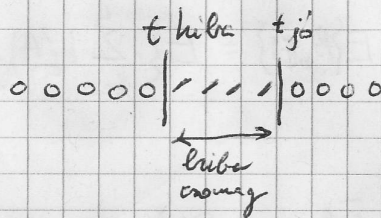 t hiba t jó
o o o o o | / / / / | o o o o
hiba
csomag